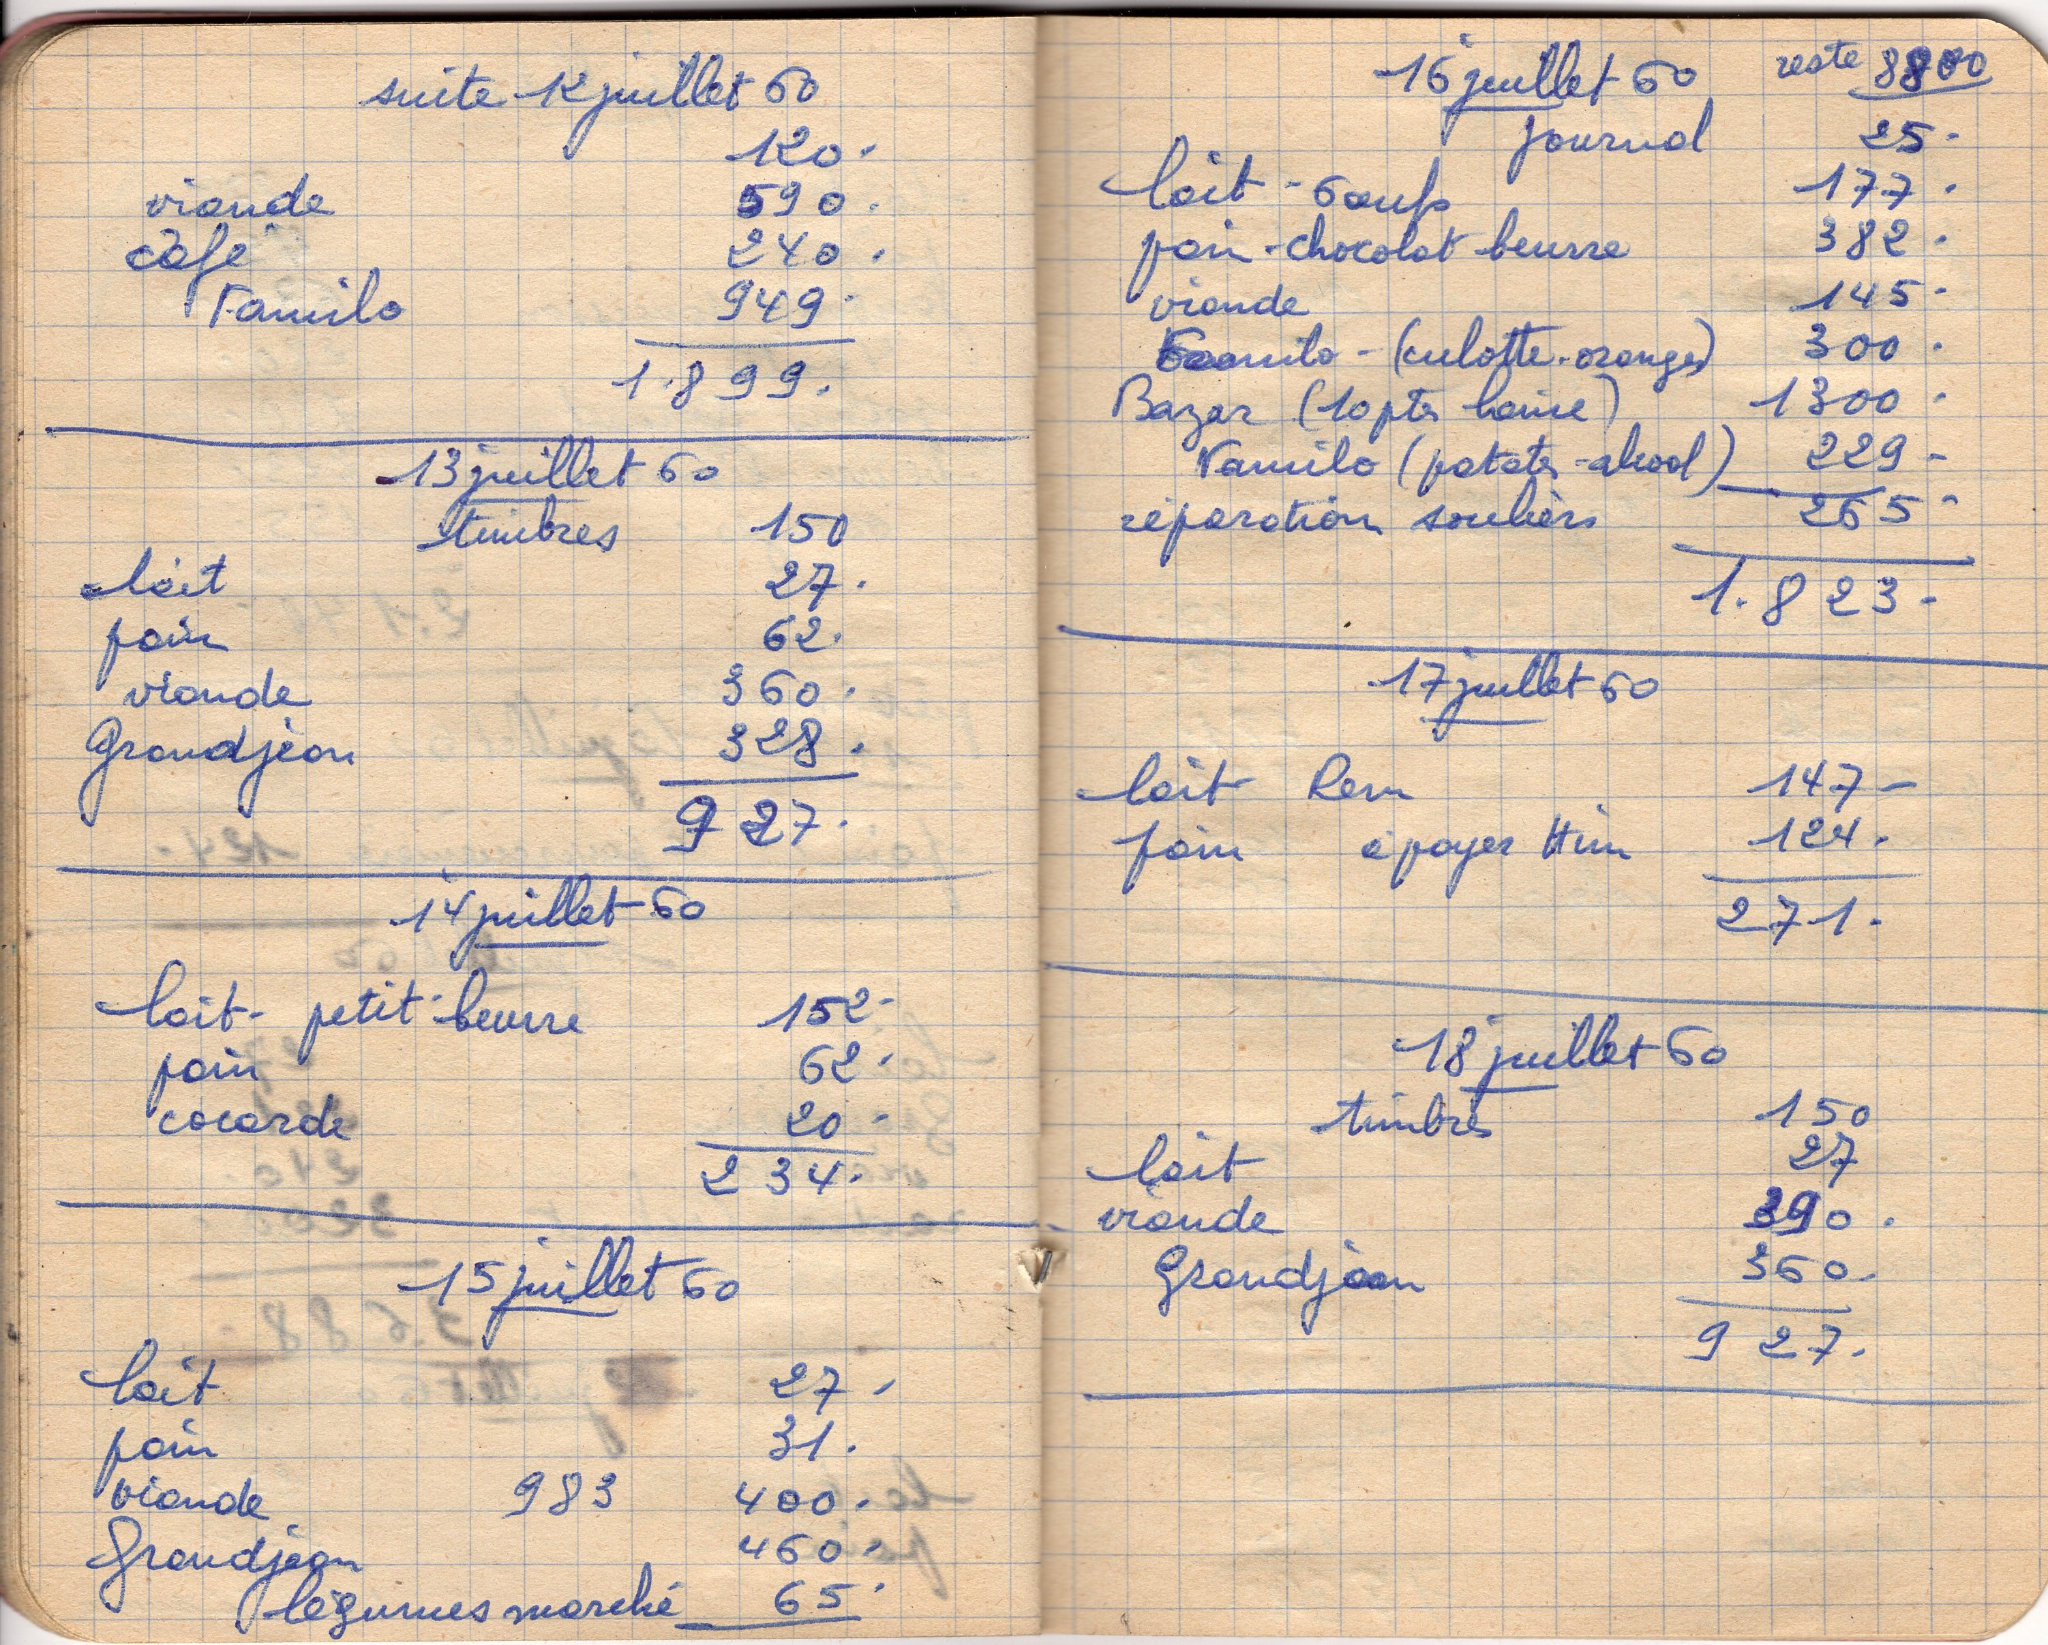 suite 12 juillet 60
120.
viande 590.
café 240.
Familo 949.
1.899.
13 juillet 60
timbres 150
lait 27.
pain 62.
viande 360.
Grandjean 328.
927.
14 juillet 60
lait - petit-beurre 152-
pain 62.
cocarde 20-
234.
15 juillet 60
lait 27-
pain 31.
viande 983 400.
Grandjean 460.
légumes marché 65.
16 juillet 60 reste 8800
journal 25-
lait - 6 oeufs 177.
pain - chocolat beurre 382.
viande 145-
Familo - (culotte - oranges) 300.
Bazar (10 pts laine) 1300.
Familo (patates - alcool) 229-
réparation souliers 265-
1.823-
17 juillet 60
lait Rem 147-
pain à payer Him 124.
271.
18 juillet 60
timbres 150
lait 27
viande 390.
Grandjean 360.
927.